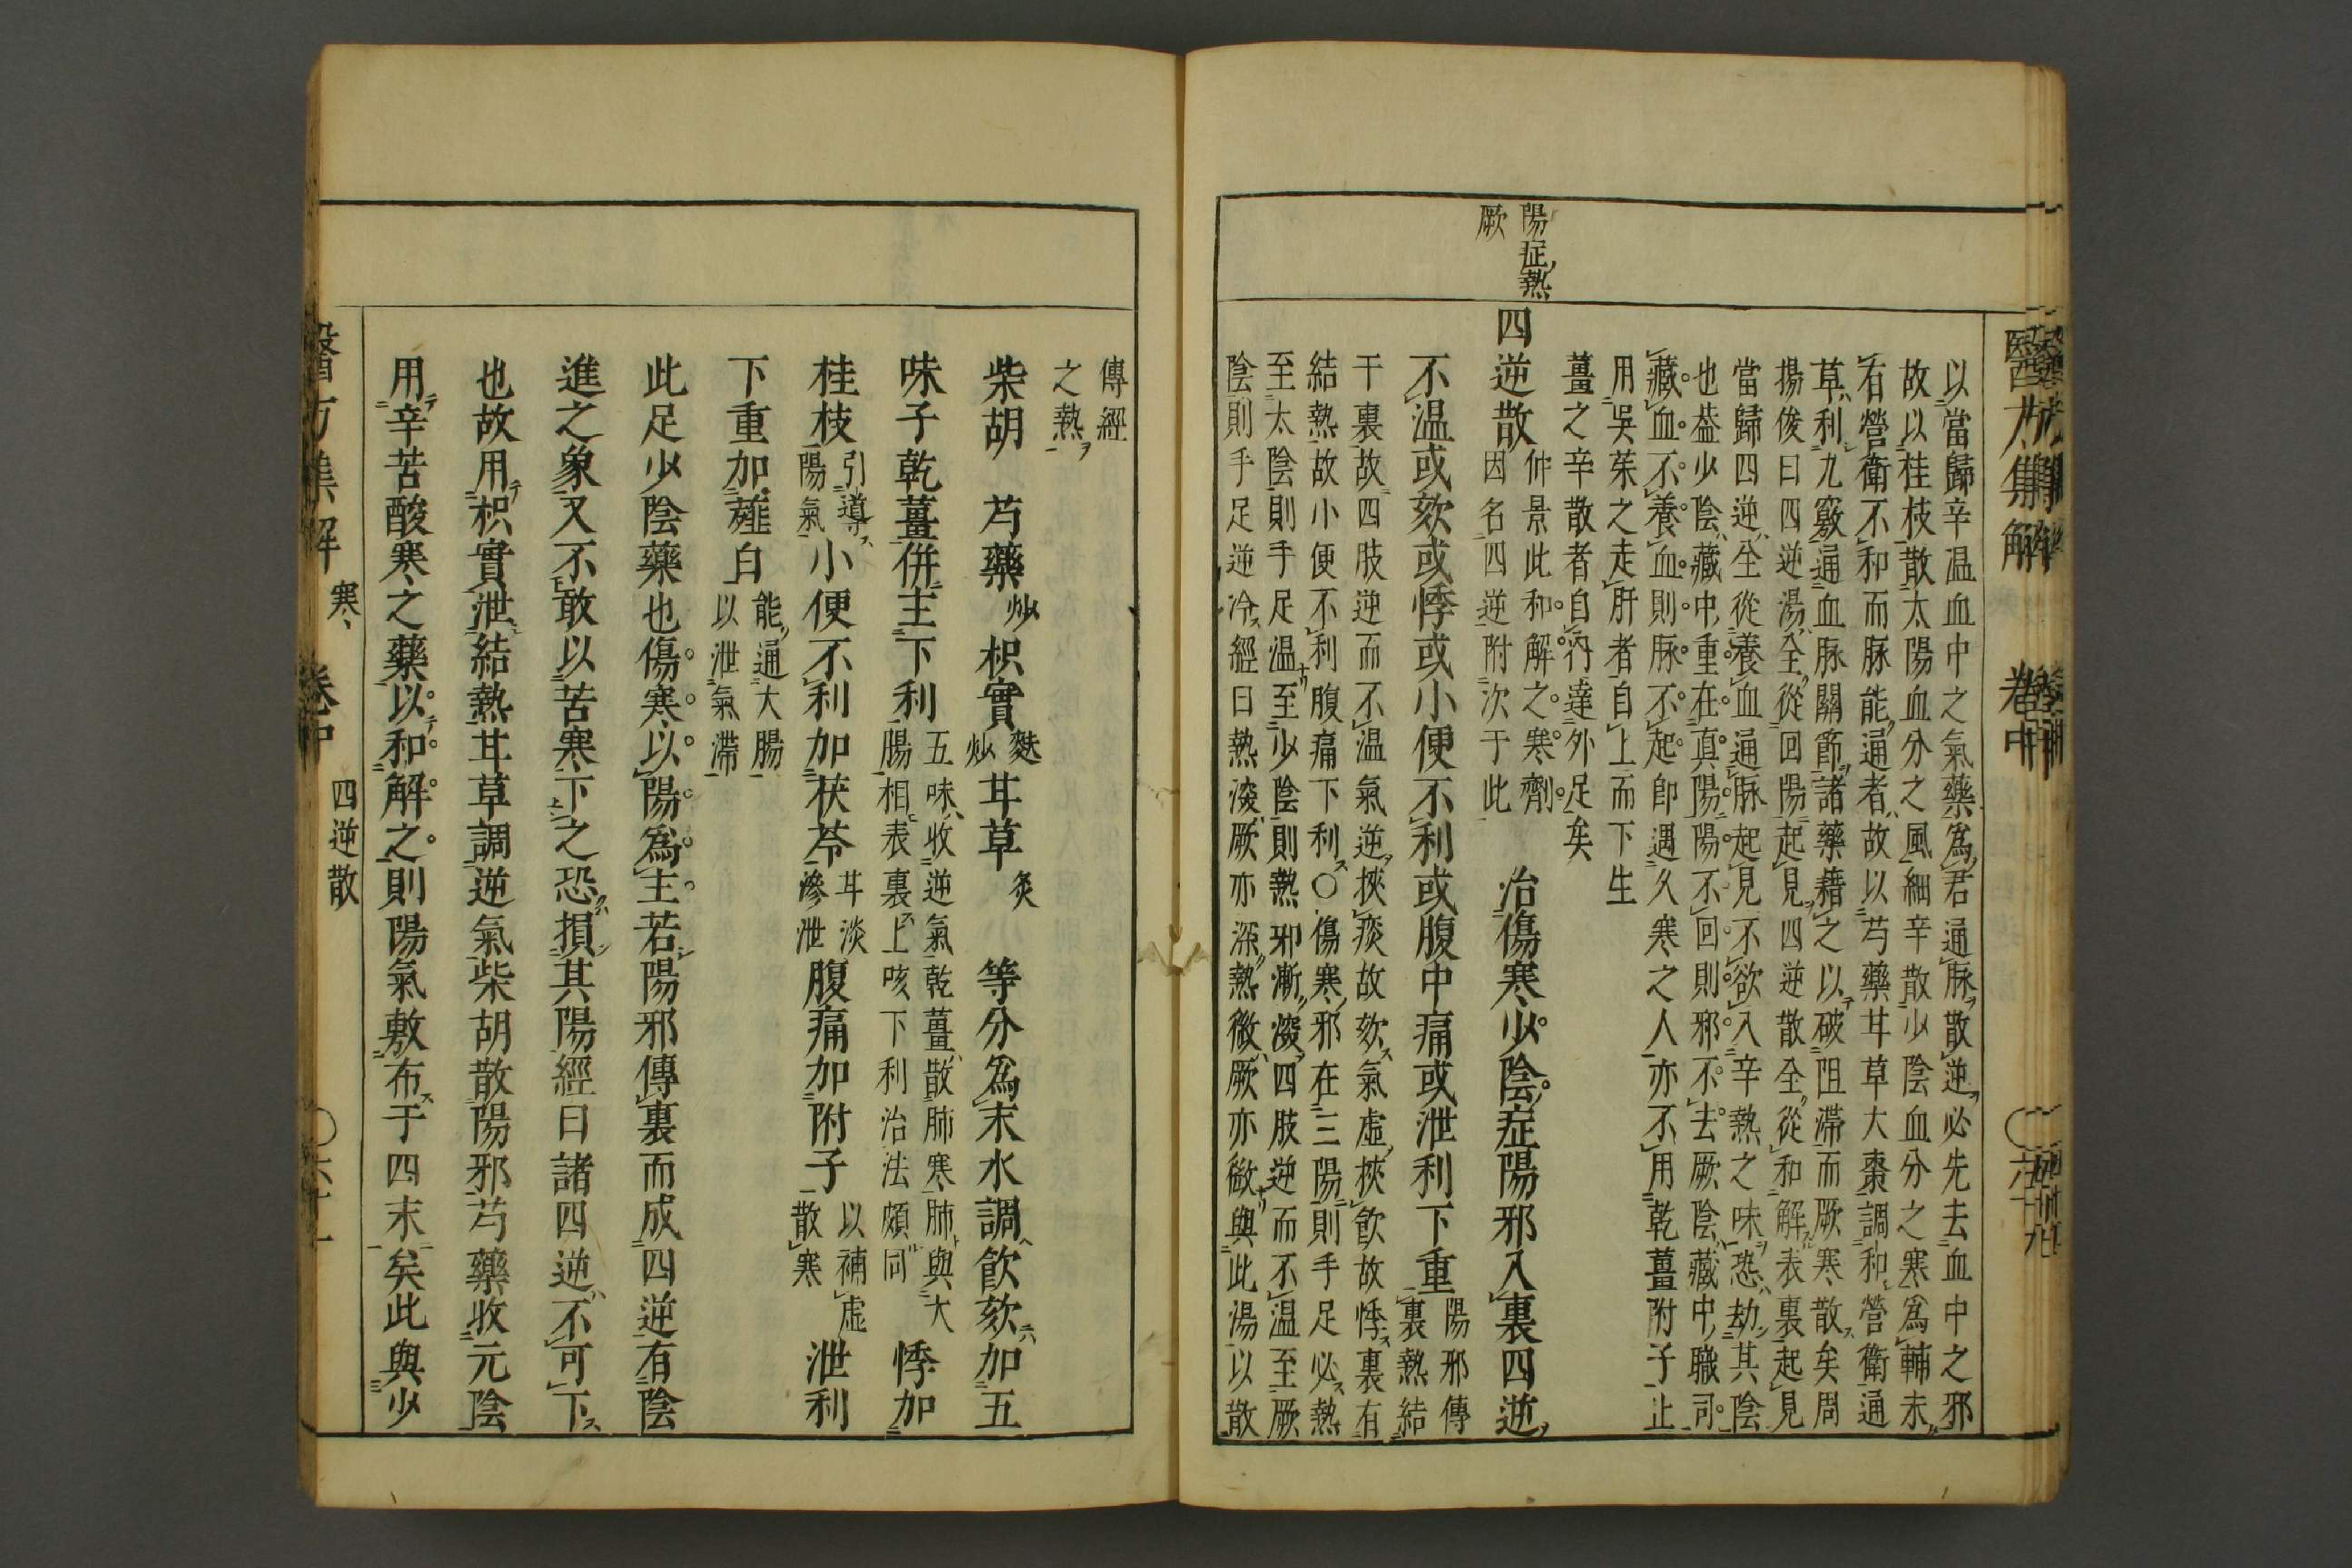 醫方集解 卷中
以當歸辛温血中之氣藥爲君通脉散逆必先去血中之邪
故以桂枝散太陽血分之風細辛散少陰血分之寒爲輔未
有營衛不和而脉能通者故以芍藥甘草大棗調和營衛通
草利九竅通血脉關節諸藥藉之以破阻滯而厥寒散矣周
揚俊曰四逆湯全從回陽起見四逆散全從和解表裏起見
當歸四逆全從養血通脉起見不欲入辛熱之味恐劫其陰
也葢少陰藏中重在真陽陽不回則邪不去厥陰藏中職司
藏血不養血則脉不起即遇久寒之人亦不用乾薑附子止
用吳茱之走肝者自上而下生
薑之辛散者自內達外足矣
陽症熱
厥
四逆散
仲景此和解之寒劑
因名四逆附次于此
治傷寒少陰症陽邪入裏四逆
不温或欬或悸或小便不利或腹中痛或泄利下重
陽邪傳
裏熱結
干裏故四肢逆而不温氣逆挾痰故欬氣虛挾飲故悸裏有
結熱故小便不利腹痛下利○傷寒邪在三陽則手足必熱
至太陰則手足温至少陰則熱邪漸深四肢逆而不温至厥
陰則手足逆冷經曰熱深厥亦深熱微厥亦微與此湯以散
傳經
之熱
柴胡 芍藥炒枳實麩炒甘草炙 等分爲末水調飲欬加五
味子乾薑併主下利
五味收逆氣乾薑散肺寒肺與大
腸相表裏上咳下利治法頗同
悸加
桂枝
引導
陽氣
小便不利加茯苓
甘淡
滲泄
腹痛加附子
以補虛
散寒
泄利
下重加薤白
能通大腸
以泄氣滯
此足少陰藥也傷寒以陽爲主若陽邪傳裏而成四逆有陰
進之象又不敢以苦寒下之恐損其陽經曰諸四逆不可下
也故用枳實泄結熱甘草調逆氣柴胡散陽邪芍藥收元陰
用辛苦酸寒之藥以和解之則陽氣敷布于四末矣此與少
醫方集解 寒 卷中 四逆散